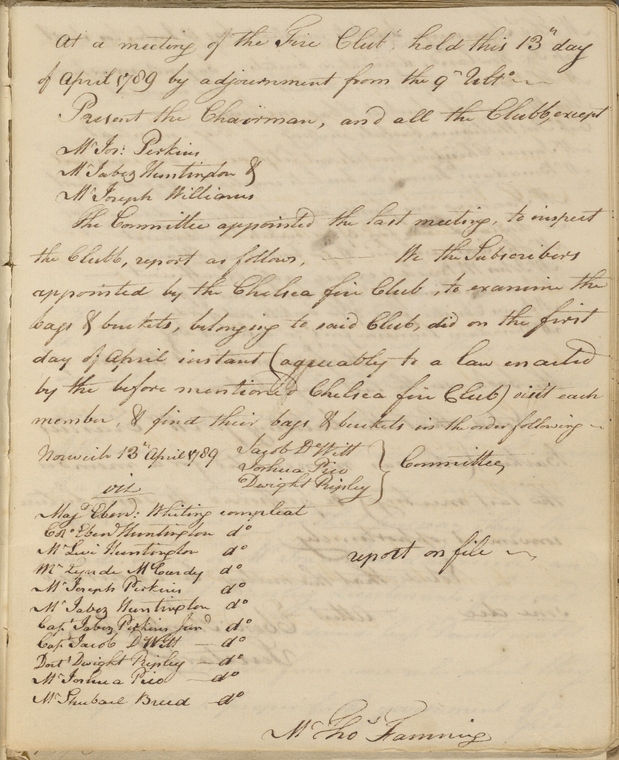 At a meeting of the Fire Club held this 13th day
of April 1789 by adjournment from the 9th Ulto
Present the Chairman, and all the Clubb, except
Mr Jos: Perkins
Mr Jabez Huntington &
Mr Joseph Williams
The Committee appointed the last meeting, to inspect
the Clubb, report as follows, We the Subscribers
appointed by the Chelsea fire Club, to examine the
bags & buckets, belonging to said Club, did on the first
day of April instant (agreeably to a law enacted
by the before mentioned Chelsea fire Club) visit each
member, & find their bags & buckets in the order following
Norwich 13th April 1789 Jacob DeWitt
Joshua Pico } Committee,
Dwight Ripley
viz
Majr Ebenr: Whiting compleat
Colo Ebenr Huntington do
Mr Levi Huntington do report on file
Mr Lynde McCurdy do
Mr Joseph Perkins do
Mr Jabez Huntington do
Capt Jabez Perkins junr do
Capt Jacob DWitt do
Doct Dwight Ripley do
Mr Joshua Pico do
Mr Shubael Breed do
Mr Thos Fanning